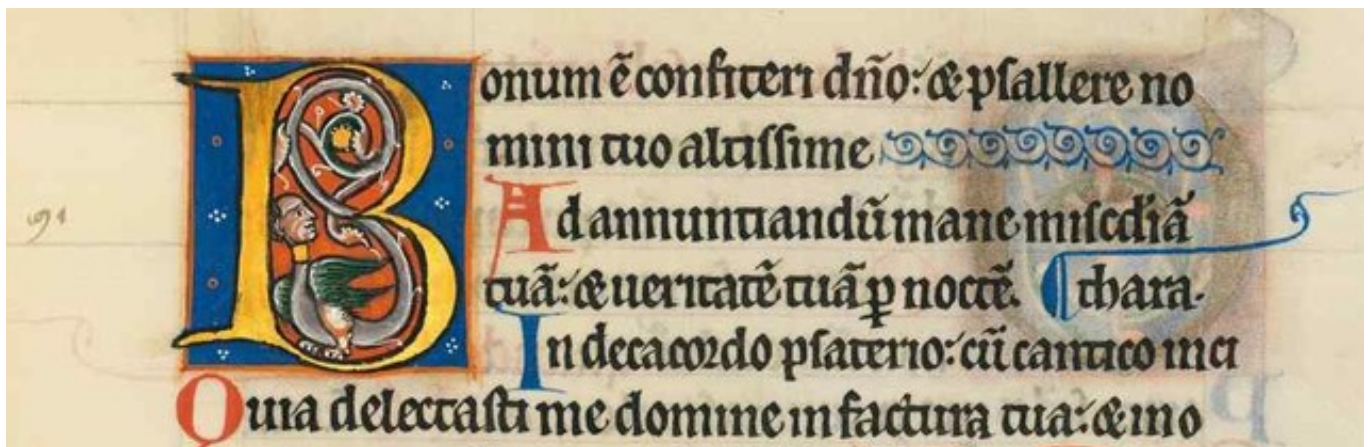 Bonum ē confiteri dn̄o: & psallere no
mini tuo altissime
Ad annuntiandū mane misc̄diā
tuā: & ueritatē tuā ꝑ noctē. thara.
In decacordo psaterio: cū cantico in ci
Quia delectasti me domine in factura tua: & in o